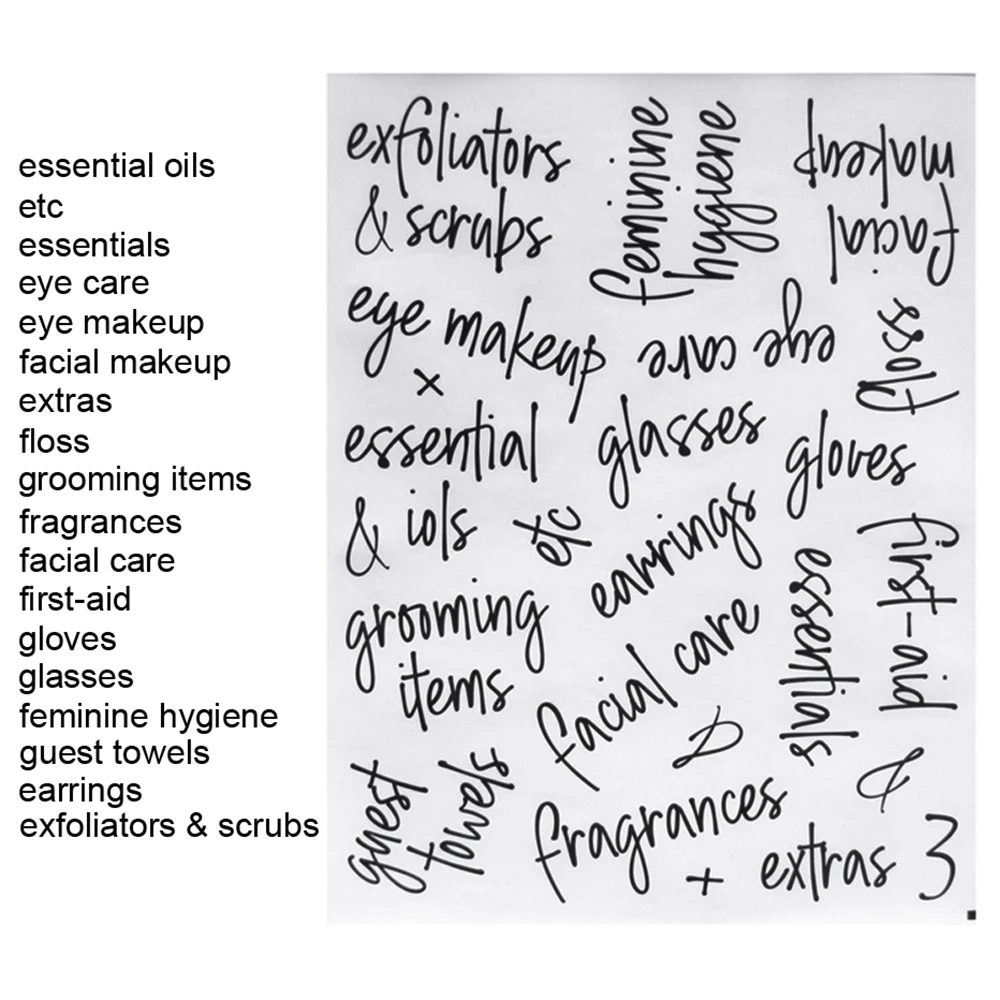 essential oils
etc
essentials
eye care
eye makeup
facial makeup
extras
floss
grooming items
fragrances
facial care
first-aid
gloves
glasses
feminine hygiene
guest towels
earrings
exfoliators & scrubs
exfoliators
& scrubs
feminine
hygiene
facial
makeup
eye makeup
eye care
floss
+
essential
glasses
gloves
& iols
etc
earrings
first-aid
essentials
grooming
items
facial care
&
&
guest
towels
fragrances
+
extras
3